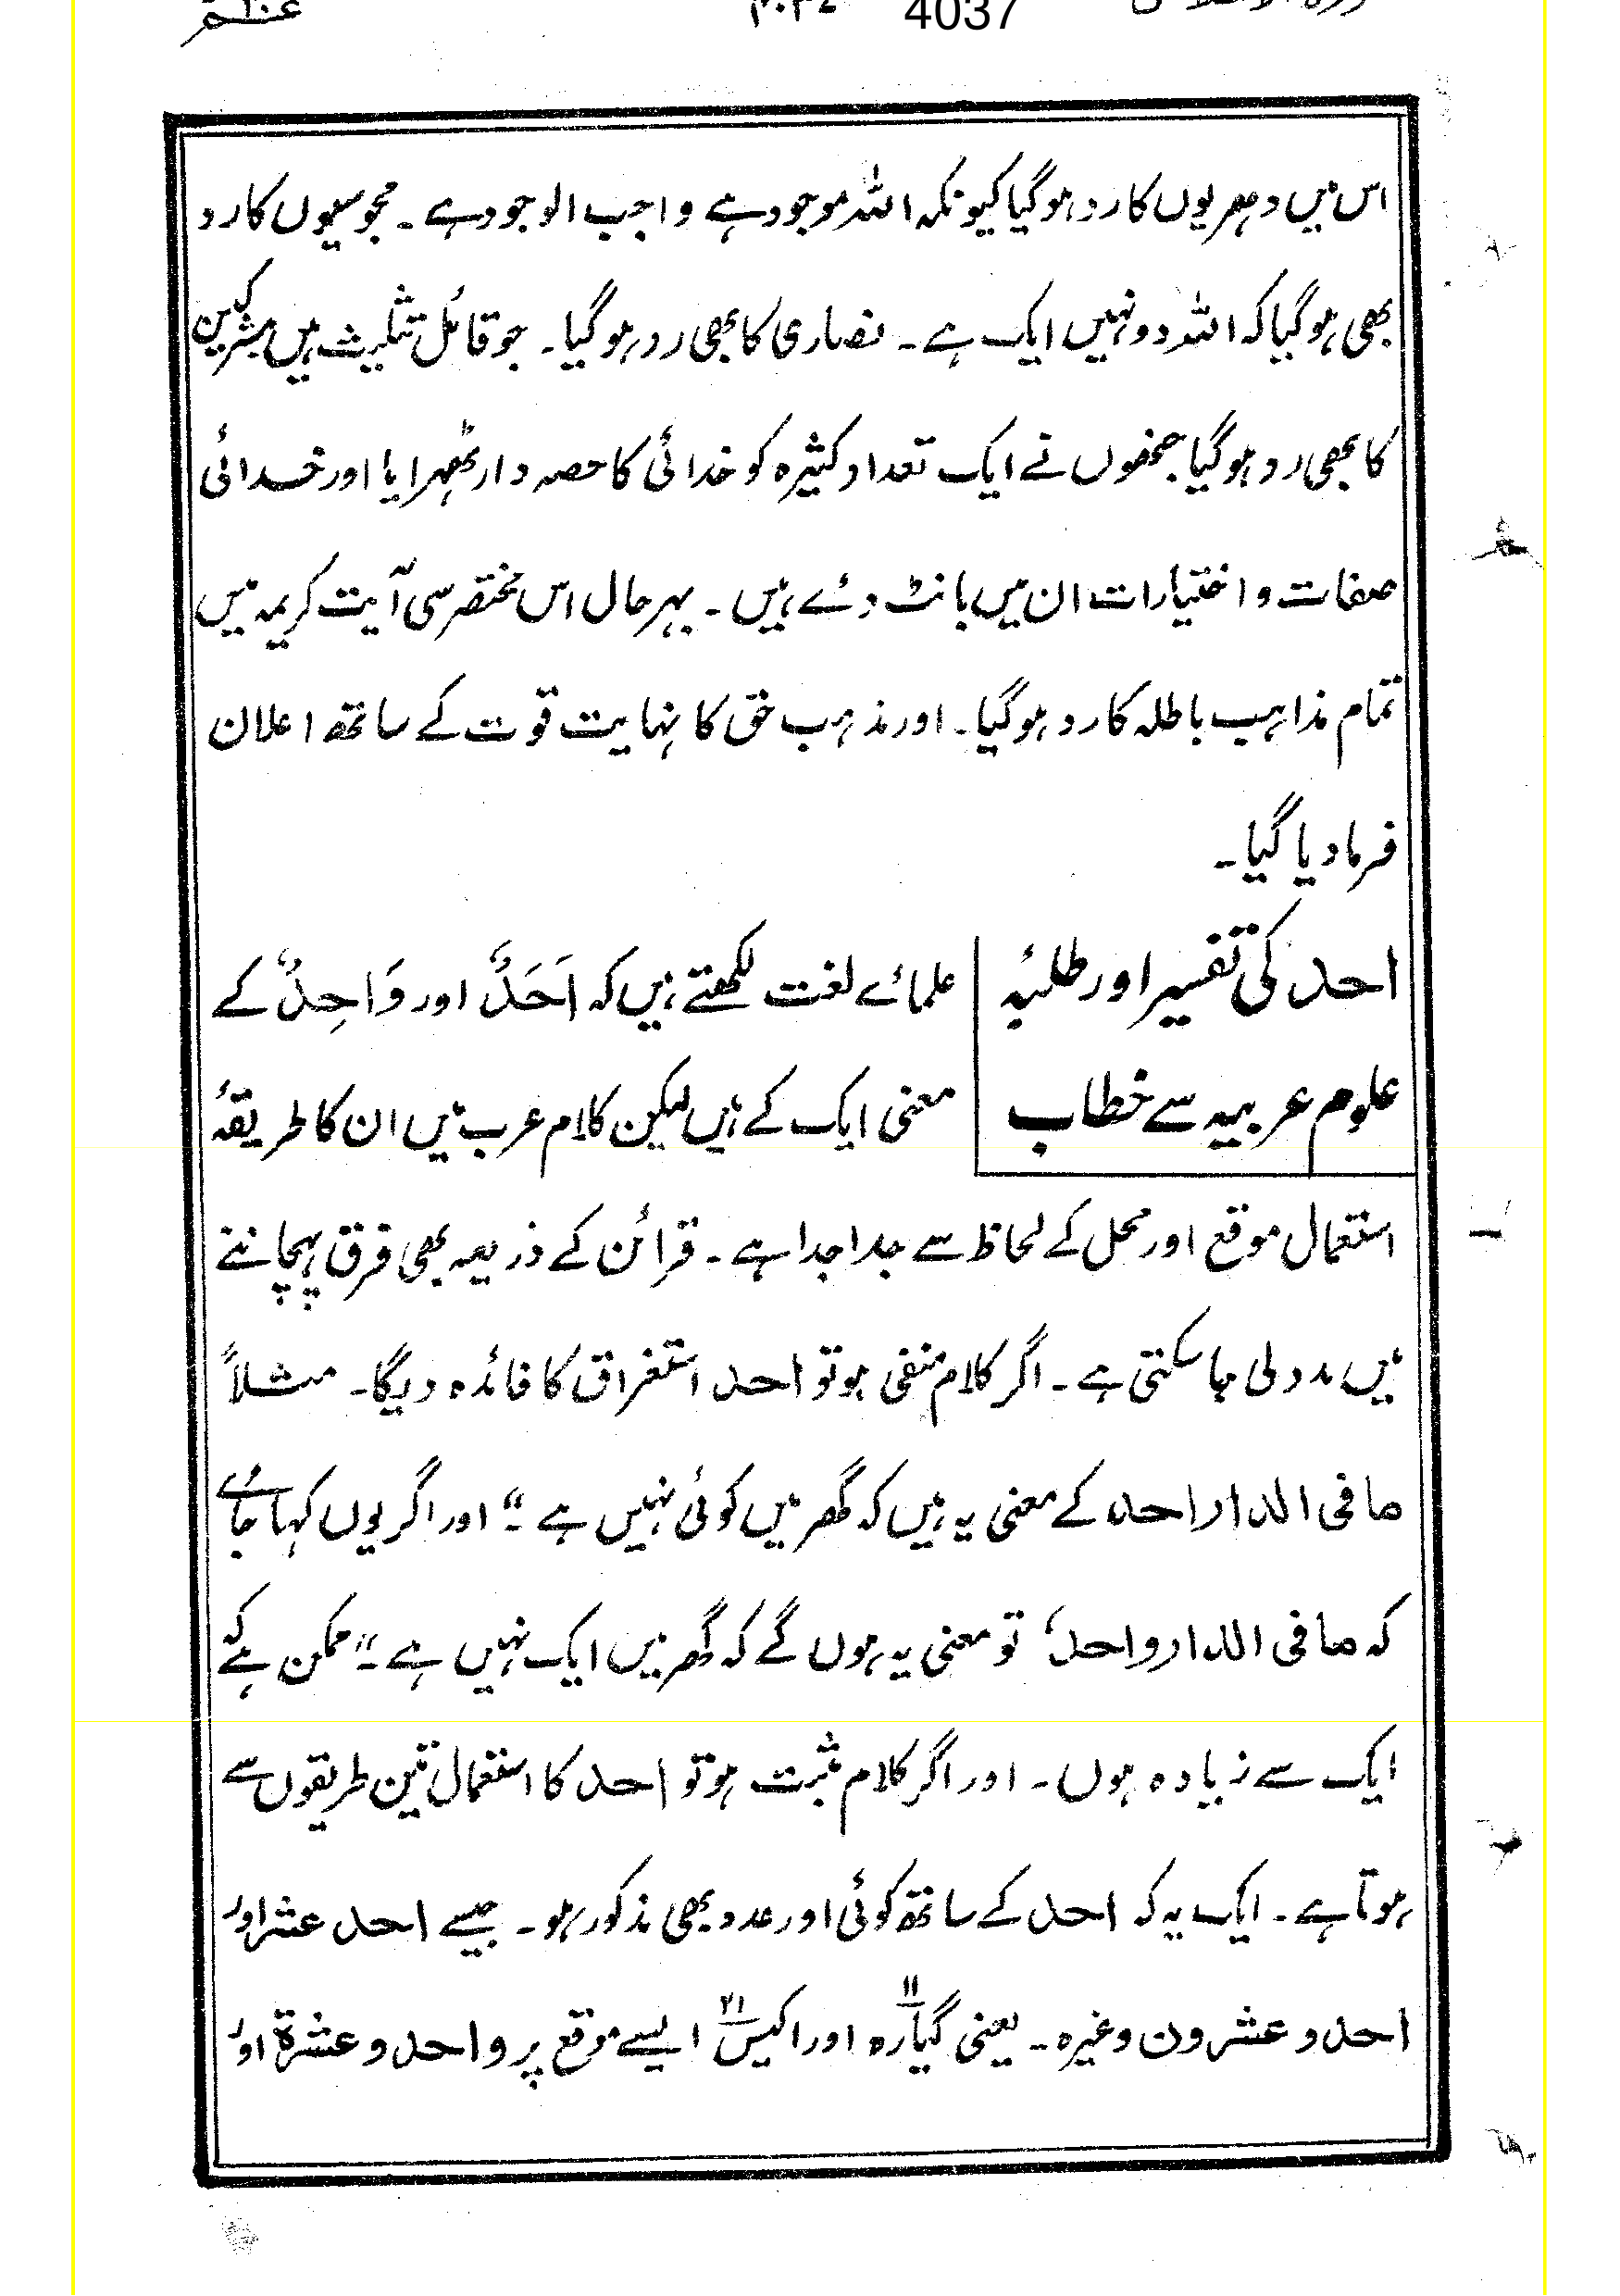 4037
اس میں دہریوں کا رد ہو گیا کیونکہ اللہ موجود ہے واجب الوجود ہے۔ مجوسیوں کا رد
بھی ہو گیا کہ اللہ دو نہیں ایک ہے۔ نصاریٰ کا بھی رد ہو گیا۔ جو قائل تثلیث ہیں مشرکین
کا بھی رد ہو گیا جنھوں نے ایک تعداد کثیرہ کو خدائی کا حصہ دار ٹھہرایا اور خدائی
صفات و اختیارات ان میں بانٹ دئے ہیں۔ بہر حال اس مختصر سی آیت کریمہ میں
تمام مذاہب باطلہ کا رد ہو گیا۔ اور مذہب حق کا نہایت قوت کے ساتھ اعلان
فرما دیا گیا۔
احد کی تفسیر اور طلبۂ
علوم عربیہ سے خطاب
علمائے لغت لکھتے ہیں کہ اَحَدٌ اور وَاحِدٌ کے
معنی ایک کے ہیں لیکن کلام عرب میں ان کا طریقۂ
استعمال موقع اور محل کے لحاظ سے جدا جدا ہے۔ قرائن کے ذریعہ بھی فرق پہچاننے
میں مدد لی جا سکتی ہے۔ اگر کلام منفی ہو تو احد استغراق کا فائدہ دیگا۔ مثلاً
ما فی الدار احد کے معنی یہ ہیں کہ گھر میں کوئی نہیں ہے۔“ اور اگر یوں کہا جائے
کہ ما فی الدار واحدٌ تو معنی یہ ہوں گے کہ گھر میں ایک نہیں ہے۔“ ممکن ہے کہ
ایک سے زیادہ ہوں۔ اور اگر کلام مثبت ہو تو احد کا استعمال تین طریقوں سے
ہوتا ہے۔ ایک یہ کہ احد کے ساتھ کوئی اور عدد بھی مذکور ہو۔ جیسے احد عشر اور
احد و عشرون وغیرہ۔ یعنی گیارہ ۱۱ اور اکیس ۲۱ ایسے موقع پر واحد و عشرة اور